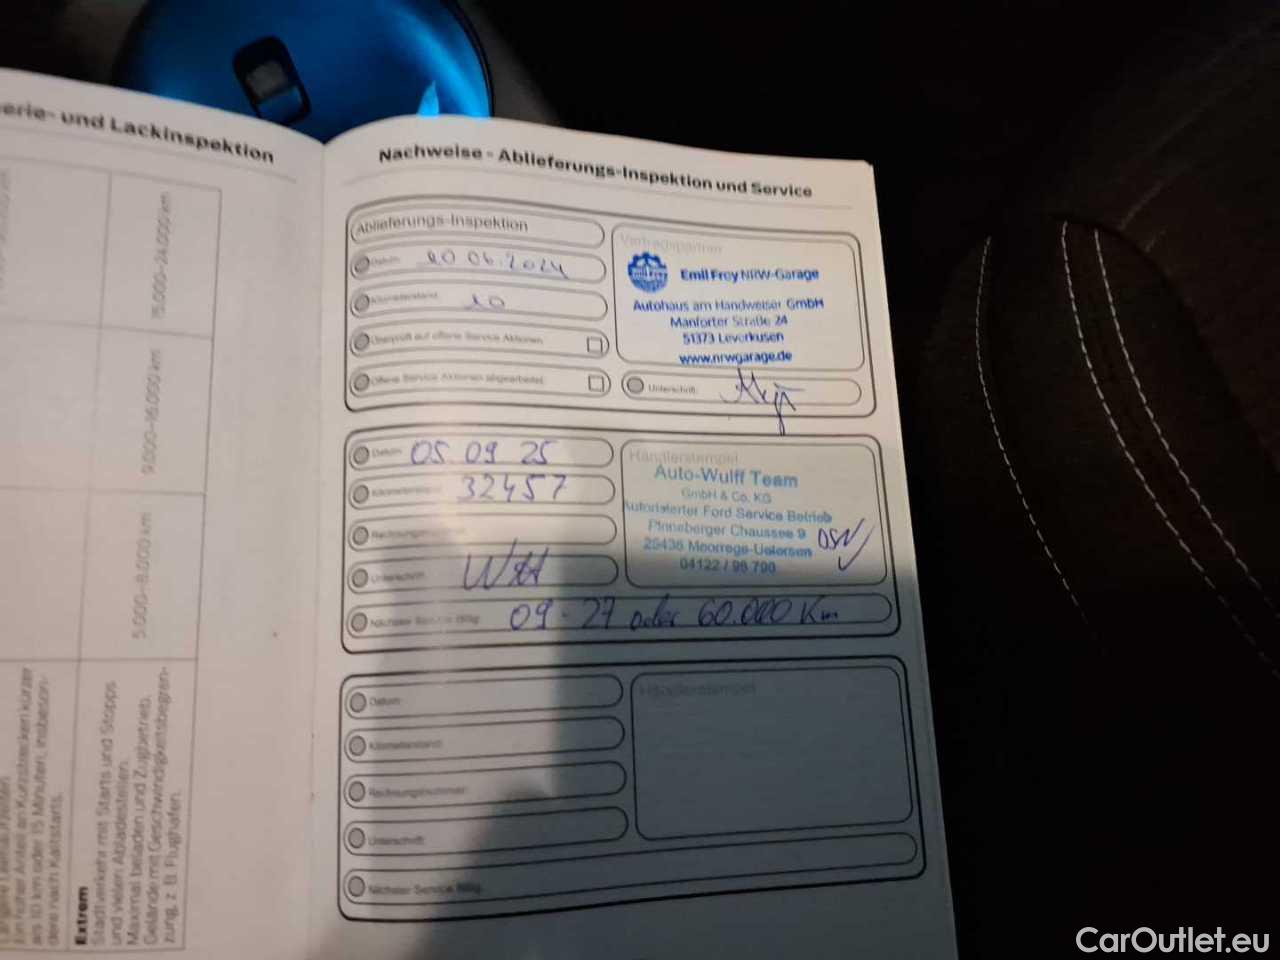 erie- und Lackinspektion
15.000–24.000 km
9.000–16.000 km
5.000–8.000 km
Ein hoher Anteil an Kurzstrecken kürzer
als 10 km oder 15 Minuten, insbeson-
dere nach Kaltstarts.
Extrem
Stadtverkehr mit Starts und Stopps
und vielen Abladestellen.
Maximal beladen und Zugbetrieb.
Gelände mit Geschwindigkeitsbegren-
zung, z. B. Flughafen.
Nachweise - Ablieferungs-Inspektion und Service
Ablieferungs-Inspektion
Datum: 20 06.2024
Kilometerstand: 10
Überprüft auf offene Service Aktionen
Offene Service Aktionen abgearbeitet
Vertragspartner
Emil Frey
Emil Frey NRW-Garage
Autohaus am Handweiser GmbH
Manforter Straße 24
51373 Leverkusen
www.nrwgarage.de
Unterschrift:
Datum: 05.09 25
Kilometerstand: 32457
Rechnungsnummer:
Unterschrift:
Nächster Service fällig: 09-27 oder 60.000 Km
Händlerstempel
Auto-Wulff Team
GmbH & Co. KG
Autorisierter Ford Service Betrieb
Pinneberger Chaussee 9
25436 Moorrege-Uetersen
04122 / 98 790
Datum:
Kilometerstand:
Rechnungsnummer:
Unterschrift:
Nächster Service fällig:
Händlerstempel
CarOutlet.eu